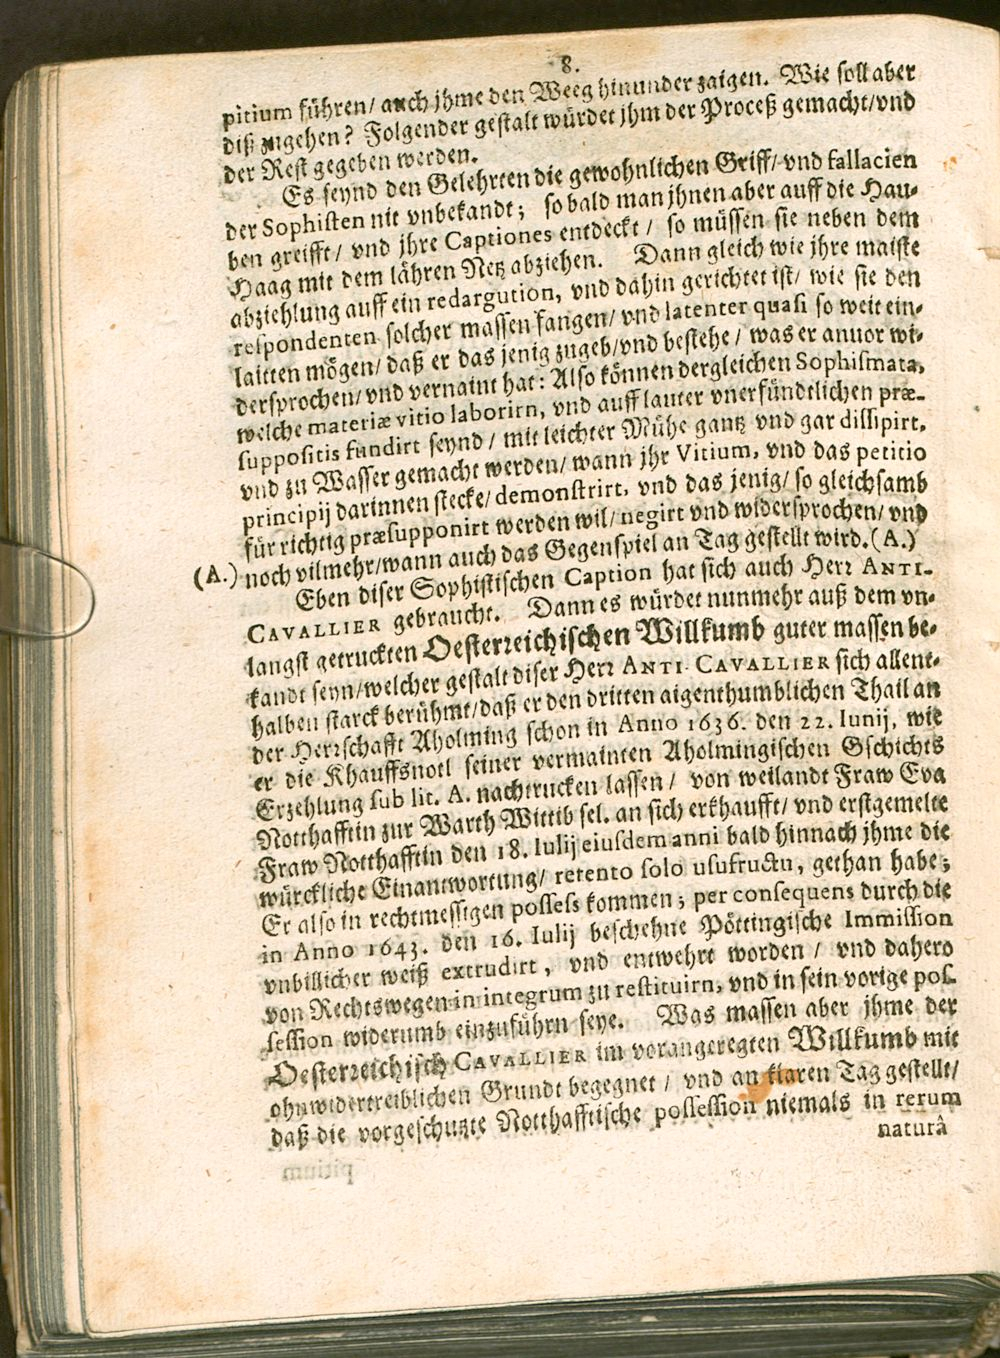 8.
pitium führen/ auch jhme den Weeg hinunder zaigen. Wie soll aber
diß zugehen? Folgender gestalt würdet jhm der Proceß gemacht/ vnd
der Rest gegeben werden.
Es seynd den Gelehrten die gewohnlichen Griff/ vnd fallacien
der Sophisten nit vnbekandt; so bald man jhnen aber auff die Hau-
ben greifft/ vnd jhre Captiones entdeckt/ so müssen sie neben dem
Haag mit dem lähren Netz abziehen. Dann gleich wie jhre maiste
abziehlung auff ein redargution, vnd dahin gerichtet ist/ wie sie den
respondenten solcher massen fangen/ vnd latenter quasi so weit ein-
laitten mögen/ daß er das jenig zugeb/ vnd bestehe/ was er anuor wi-
dersprochen/ vnd vernaint hat: Also können dergleichen Sophismata,
welche materiæ vitio laborirn, vnd auff lauter vnerfündtlichen præ-
suppositis fundirt seynd/ mit leichter Mühe gantz vnd gar dissipirt,
vnd zu Wasser gemacht werden/ wann jhr Vitium, vnd das petitio
principij darinnen stecke/ demonstrirt, vnd das jenig/ so gleichsamb
für richtig præsupponirt werden wil/ negirt vnd widersprochen/ vnd
(A.) noch vilmehr/ wann auch das Gegenspiel an Tag gestellt wird. (A.)
Eben diser Sophistischen Caption hat sich auch Herr ANTI-
CAVALLIER gebraucht. Dann es würdet nunmehr auß dem vn-
langst getruckten Oesterreichischen Willkumb guter massen be-
kandt seyn/ welcher gestalt diser Herr ANTI-CAVALLIER sich allent-
halben starck berühmt/ daß er den dritten aigenthumblichen Thail an
der Herrschafft Aholming schon in Anno 1636. den 22. Iunij, wie
er die Khauffsnotl seiner vermainten Aholmingischen Gschichts
Erzehlung sub lit. A. nachtrucken lassen/ von weilandt Fraw Eva
Notthafftin zur Warth Wittib sel. an sich erkhaufft/ vnd erstgemelte
Fraw Notthafftin den 18. Iulij eiusdem anni bald hinnach jhme die
würckliche Einantwortung/ retento solo usufructu, gethan habe;
Er also in rechtmessigen possess kommen; per consequens durch die
in Anno 1643. den 16. Iulij beschehne Pöttingische Immission
vnbillicher weiß extrudirt, vnd entwehrt worden/ vnd dahero
von Rechtswegen in integrum zu restituirn, vnd in sein vorige pos-
session widerumb einzuführn seye. Was massen aber jhme der
Oesterreichisch CAVALLIER im vorangeregten Willkumb mit
ohnwidertreiblichen Grundt begegnet/ vnd an klaren Tag gestellt/
daß die vorgeschutzte Notthafftische possession niemals in rerum
naturâ